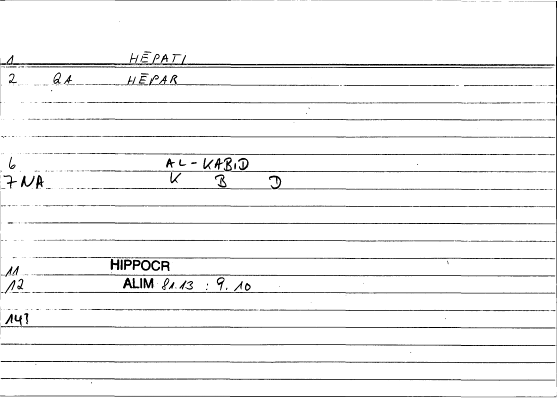 1 HĒPATI
2 QA HĒPAR
6 AL-KABID
7 NA K B D
11 HIPPOCR
12 ALIM 81.13 : 9.10
14?